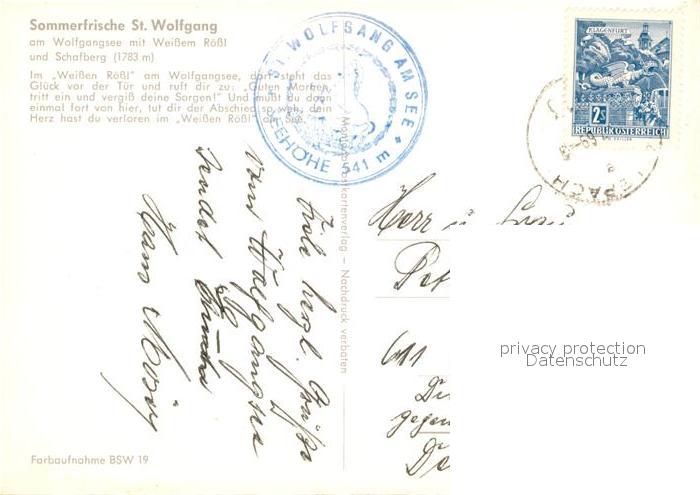 Sommerfrische St. Wolfgang
am Wolfgangsee mit Weißem Rößl
und Schafberg (1783 m)
Im „Weißen Rößl" am Wolfgangsee, dort steht das
Glück vor der Tür und ruft dir zu: „Guten Morgen,
tritt ein und vergiß deine Sorgen!" Und mußt du dann
einmal fort von hier, tut dir der Abschied so weh, dein
Herz hast du verloren im „Weißen Rößl" am See.
ST. WOLFGANG AM SEE
SEEHÖHE 541 m
KLAGENFURT
2S
REPUBLIK ÖSTERREICH
Postkartenverlag — Nachdruck verboten
Viele herzl. Grüße
vom Wolfgangsee
sendet
Hans
Herr u.
611
gegen
privacy protection
Datenschutz
Farbaufnahme BSW 19